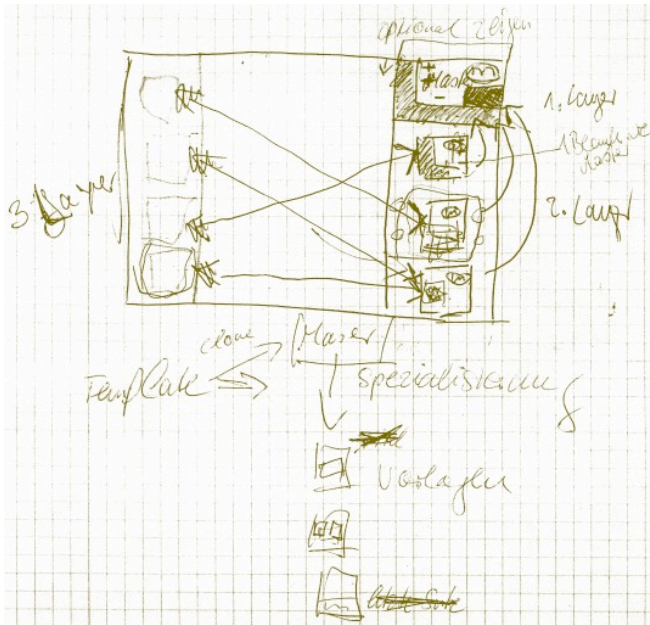 optional zeigen
Mask
1. Layer
1
2. Layer
3. Layer
clone
Master
Template
Spezialisierung
Vorlagen